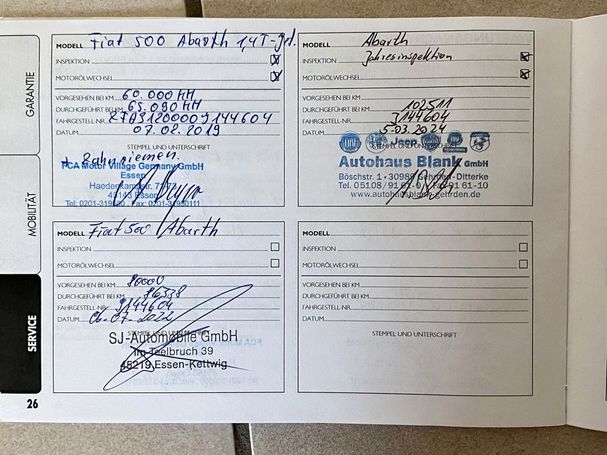 GARANTIE
MOBILITÄT
SERVICE
26
MODELL Fiat 500 Abarth 1,4 T-Jet.
INSPEKTION
MOTORÖLWECHSEL
VORGESEHEN BEI KM 60.000 KM
DURCHGEFÜHRT BEI KM 65.090 KM
FAHRGESTELL-NR. ZFA3120000J144604
DATUM 07.02.2019
STEMPEL UND UNTERSCHRIFT
+ Zahnriemen.
FCA Motor Village Germany GmbH
Essen
45143 Essen
MODELL Abarth
INSPEKTION Jahresinspektion
MOTORÖLWECHSEL
VORGESEHEN BEI KM
DURCHGEFÜHRT BEI KM 102511
FAHRGESTELL-NR. J144604
DATUM 5-03.2024
STEMPEL UND UNTERSCHRIFT
Jeep
Autohaus Blank GmbH
Böschstr. 1 · 30989 Gehrden-Ditterke
Tel. 05108 / 91 61-10
www.autohausblank-gehrden.de
MODELL Fiat 500 Abarth
INSPEKTION
MOTORÖLWECHSEL
VORGESEHEN BEI KM 90000
DURCHGEFÜHRT BEI KM 86538
FAHRGESTELL-NR. J144604
DATUM 06-07-2022
STEMPEL UND UNTERSCHRIFT
SJ-Automobile GmbH
Im Teelbruch 39
45219 Essen-Kettwig
MODELL
INSPEKTION
MOTORÖLWECHSEL
VORGESEHEN BEI KM
DURCHGEFÜHRT BEI KM
FAHRGESTELL-NR.
DATUM
STEMPEL UND UNTERSCHRIFT